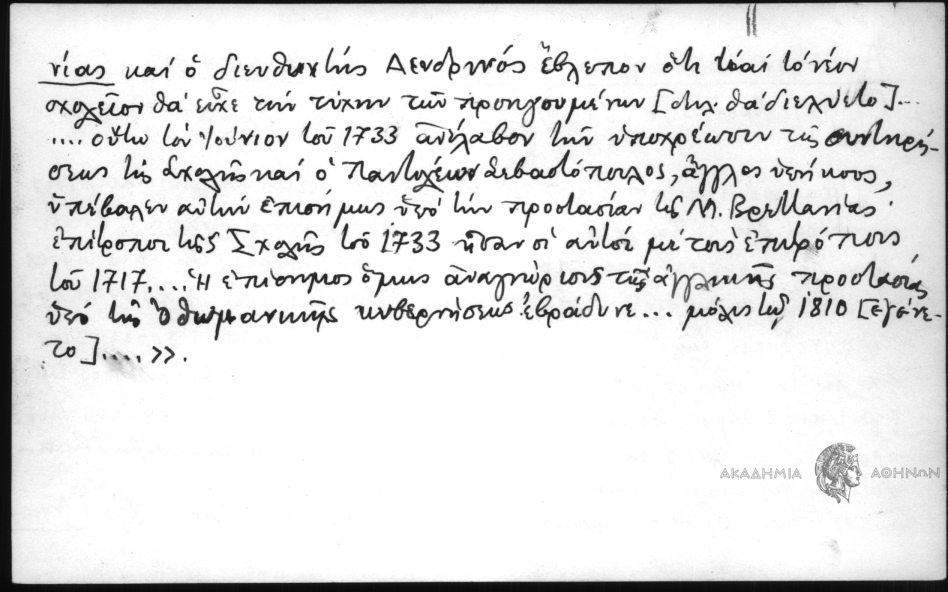 νίας καί ὁ διευθυντής Δενδρινός ἔβλεπον ὅτι καί τό νέον
σχολεῖον θά εἶχε τήν τύχην τῶν προηγουμένων [δηλ. θά διελύετο]...
.... οὕτω τόν Ἰούνιον τοῦ 1733 ἀνέλαβον τήν ὑποχρέωσιν τῆς συντηρή-
σεως τῆς Σχολῆς καί ὁ Πανταλέων Σεβαστόπουλος, ἄγγλος ὑπήκοος,
ὑπέβαλεν αὐτήν ἐπισήμως ὑπό τήν προστασίαν τῆς Μ. Βρεττανίας·
ἐπίτροποι τῆς Σχολῆς τοῦ 1733 ἦσαν οἱ αὐτοί μέ τούς ἐπιτρόπους
τοῦ 1717.... Ἡ ἐπίσημος ὅμως ἀναγνώρισις τῆς ἀγγλικῆς προστασίας
ὑπό τῆς Ὀθωμανικῆς κυβερνήσεως ἐβράδυνε... μόλις τῷ 1810 [ἐγένε-
το].... >>.
ΑΚΑΔΗΜΙΑ ΑΘΗΝΩΝ